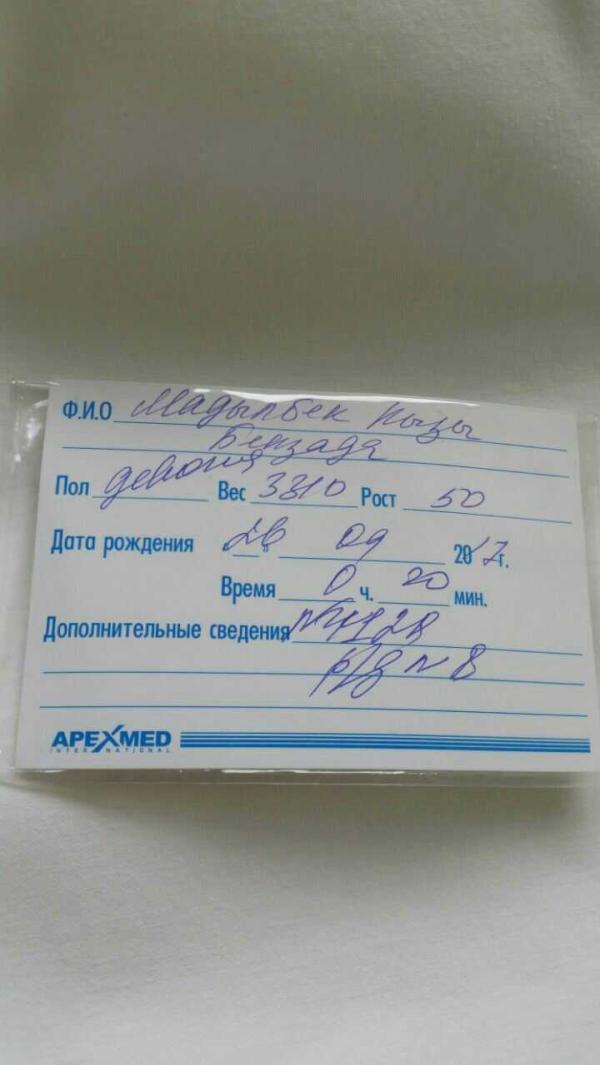 Ф.И.О Мадылбек кызы
Бекзада
Пол девочка Вес 3310 Рост 50
Дата рождения 28 09 2017г.
Время 0 ч. 20 мин.
Дополнительные сведения
р/д N 8
APEXMED
INTERNATIONAL